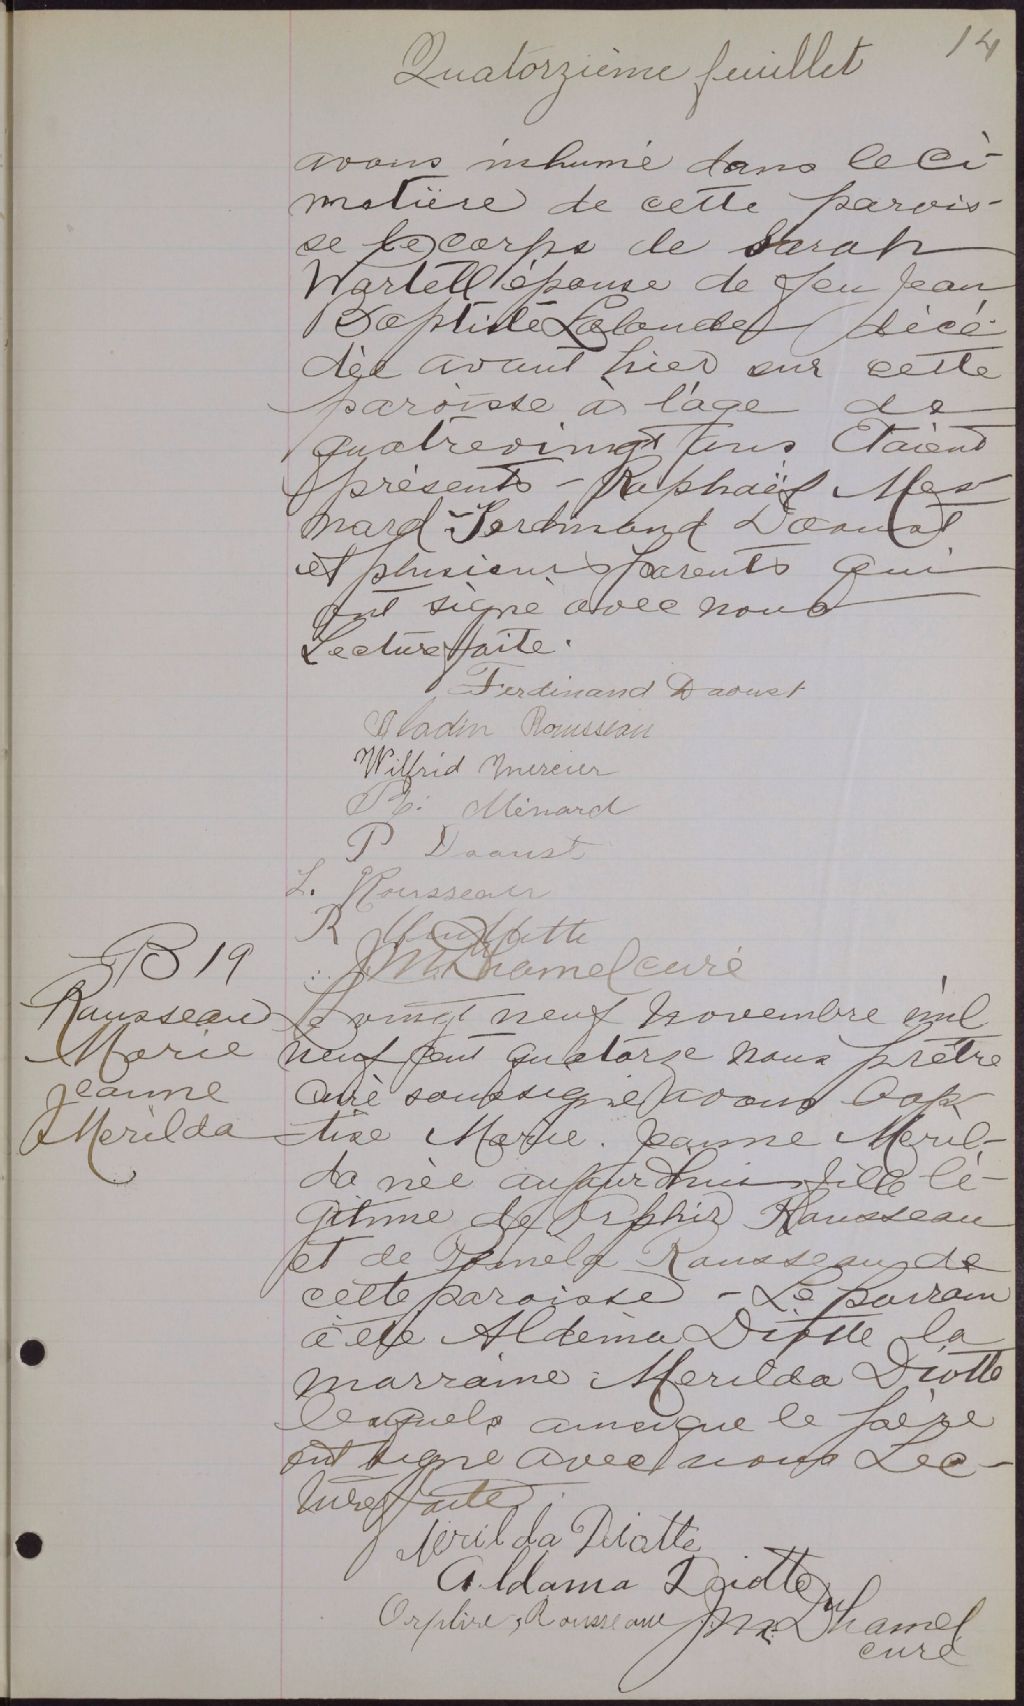 14
Quatorzième feuillet
avons inhumé dans le ci-
metière de cette parois-
se le corps de Sarah
Martell épouse de feu Jean
Baptiste Lalonde décé-
dée avant hier sur cette
paroisse à l'age de
quatrevingt ans Etaient
présents - Raphaël Mes-
nard - Ferdinand Daoust
et plusieurs parents qui
ont signé avec nous
Lecture faite.
Ferdinand Daoust
Rousseau
Wilfrid Mercier
R. Ménard
P Daoust
L. Rousseau
R
J M Duhamel curé
B 19
Rousseau
Marie
Jeanne
Merilda
Le vingt neuf novembre mil
neuf cent quatorze nous prêtre
curé soussigné avons bap-
tisé Marie. Jeanne Meril-
da née aujourdhui fille lé-
gitime de Orphir Rousseau
et de Rousseau de
cette paroisse - Le parrain
a été Aldéma Diotte la
marraine Merilda Diotte
lesquels ainsi que le père
ont signé avec nous Lec-
ture faite.
Merilda Diotte
Aldama Diotte
Orphire Rousseau J M Duhamel
curé